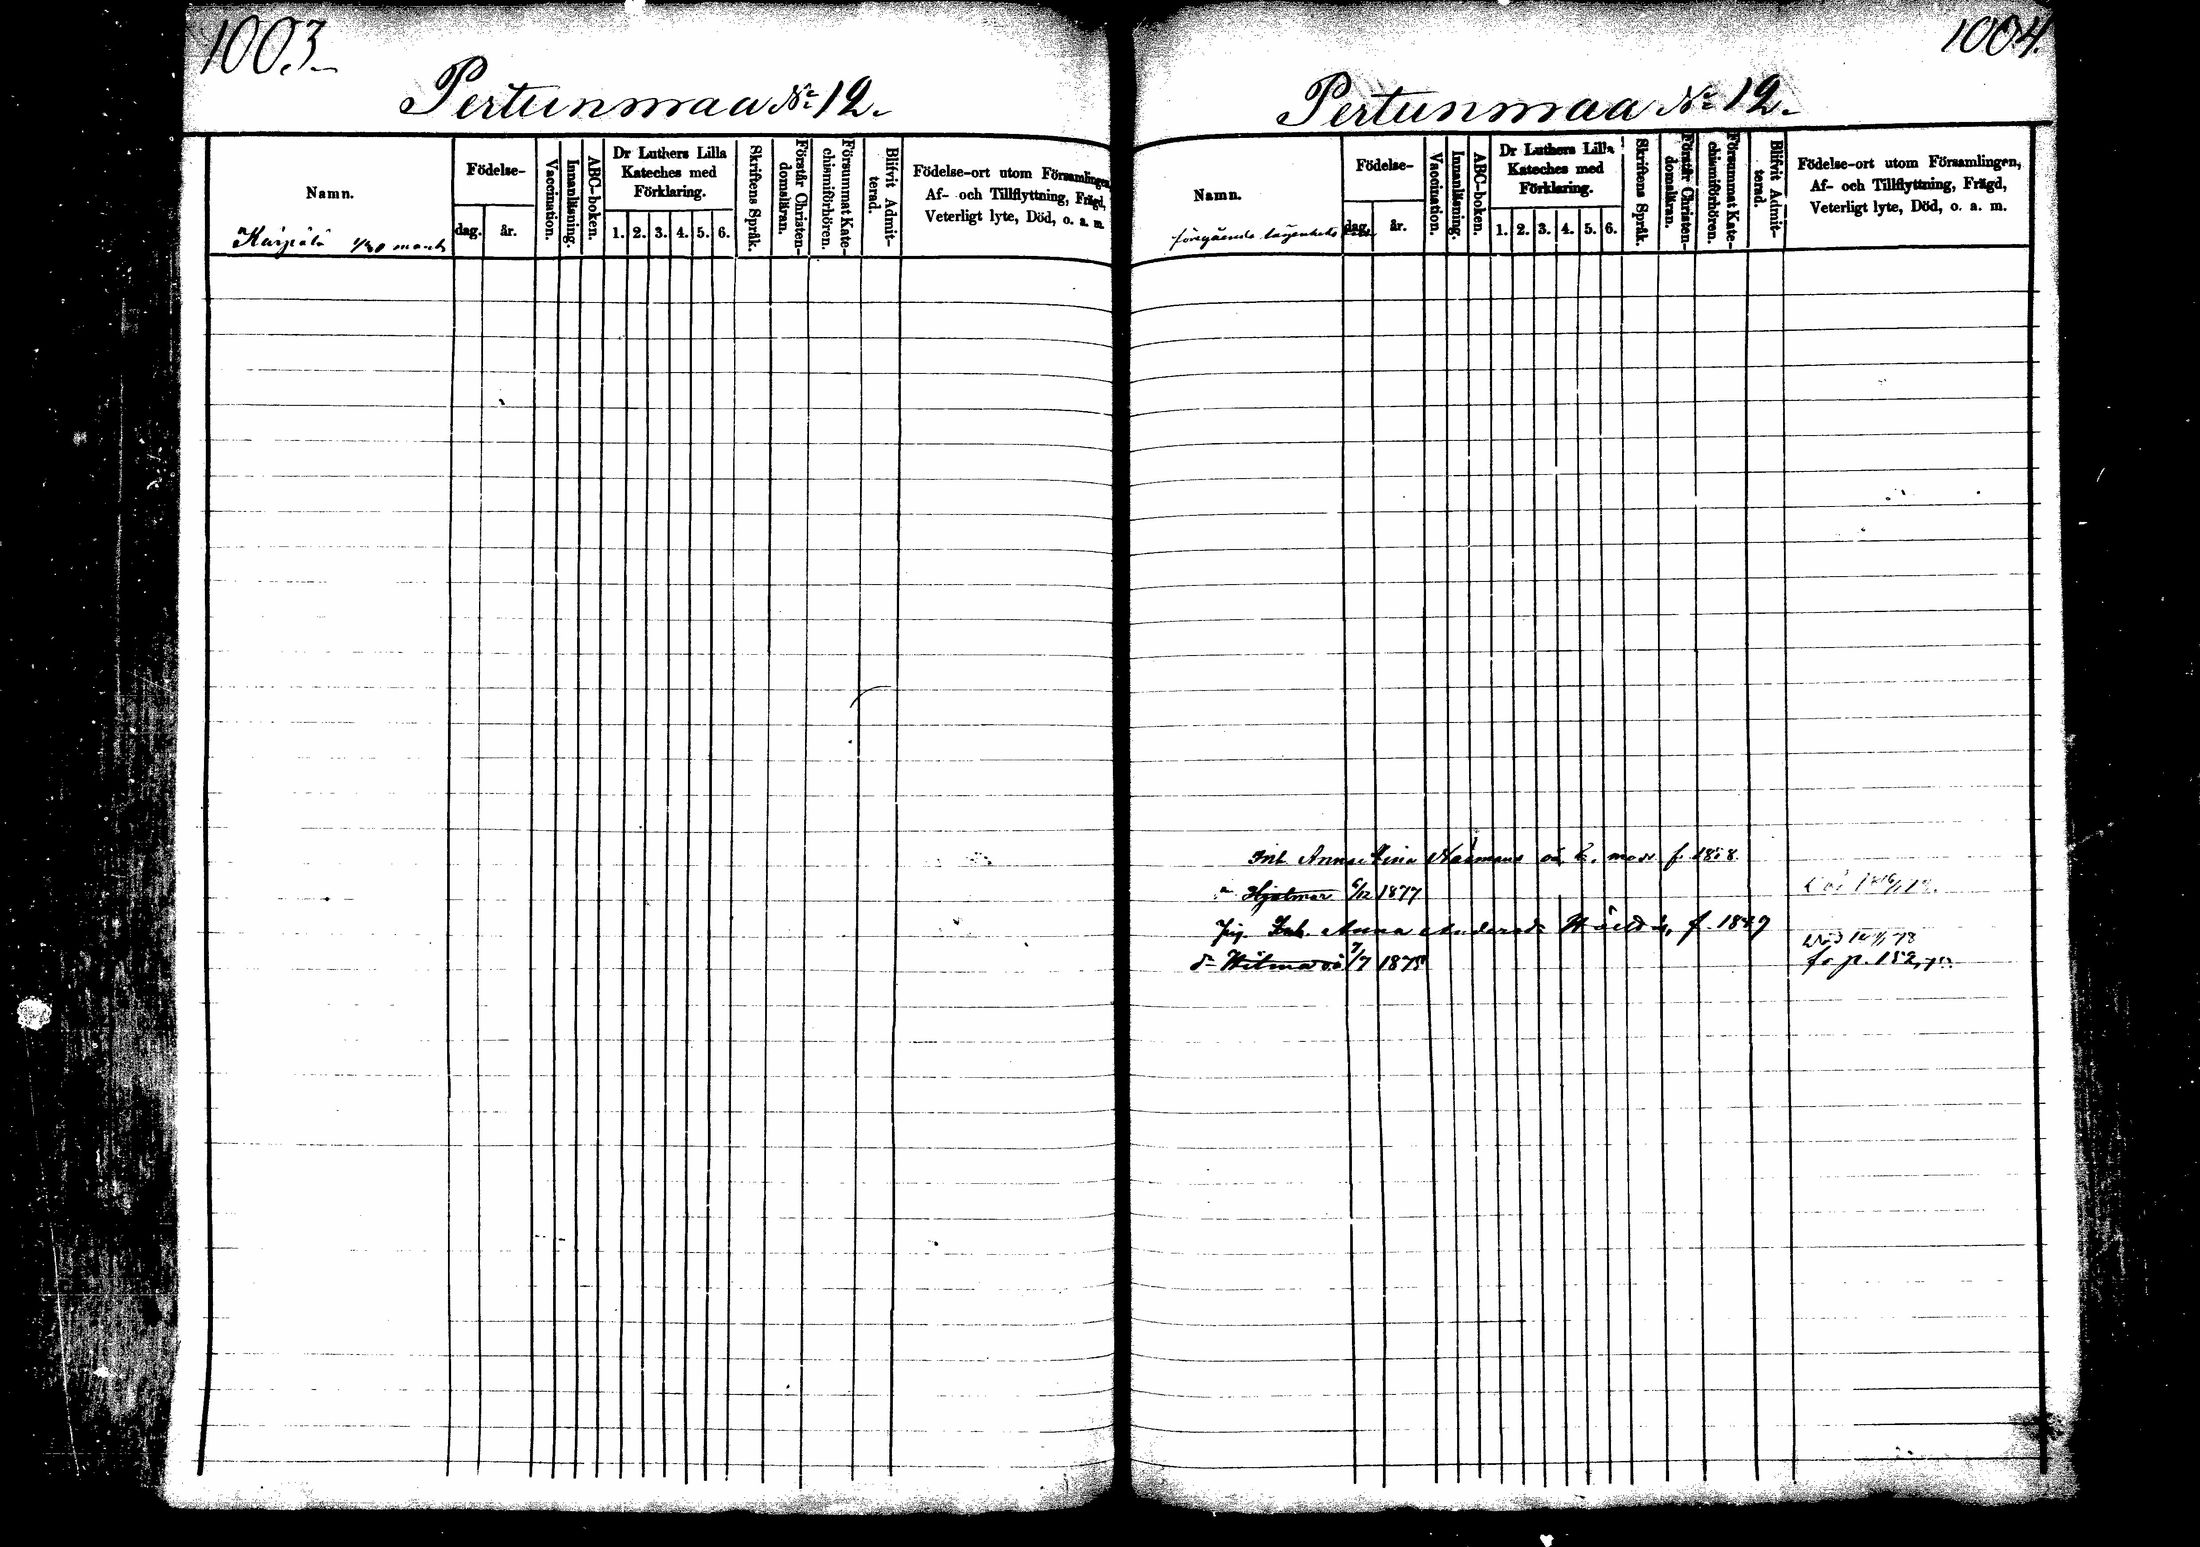 1003
Pertunmaa No 12.
Namn.
Födelse-
dag.
år.
Vaccination.
Innanläsning.
ABC-boken.
Dr Luthers Lilla
Kateches med
Förklaring.
1. 2. 3. 4. 5. 6.
Skriftens Språk.
Förstår Christen-
domsläran.
Försummat Kate-
chismiförhören.
Blifvit Admit-
terad.
Födelse-ort utom Församlingen,
Af- och Tillflyttning, Frägd,
Veterligt lyte, Död, o. a. m.
1004.
Pertunmaa No 12.
Namn.
Födelse-
dag.
år.
Vaccination.
Innanläsning.
ABC-boken.
Dr Luthers Lilla
Kateches med
Förklaring.
1. 2. 3. 4. 5. 6.
Skriftens Språk.
Förstår Christen-
domsläran.
Försummat Kate-
chismiförhören.
Blifvit Admit-
terad.
Födelse-ort utom Församlingen,
Af- och Tillflyttning, Frägd,
Veterligt lyte, Död, o. a. m.
föregående lägenhets
Inh. Anna Stina f. 1858.
Hjalmar 6/12 1877
Inh. Anna Andersdr f. 1849
d. Wilma oä 7/7 1875
fr p. 152